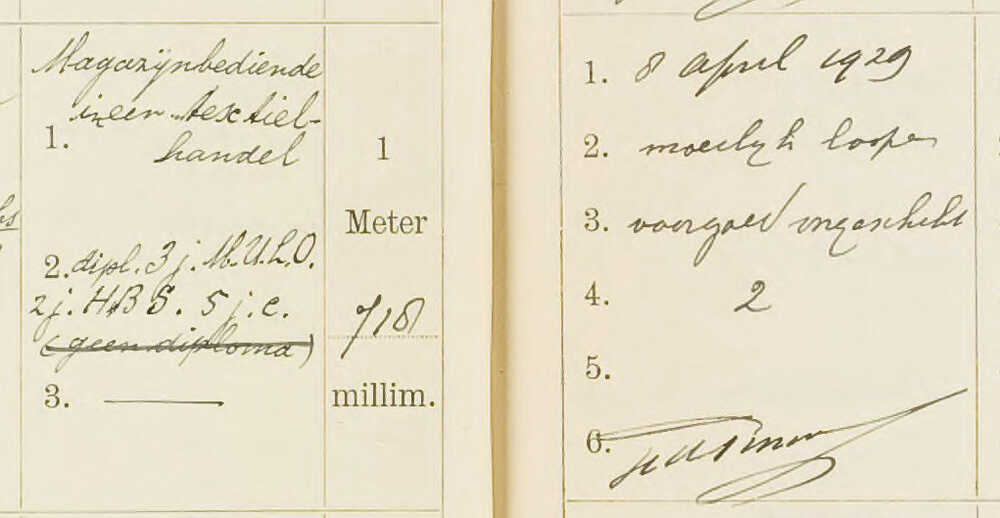 Magazijnbediende
in een textiel-
1. handel
2. dipl. 3 j. M.U.L.O.
2 j. H.B.S. 5 j. c.
(geen diploma)
3. —
1
Meter
718
millim.
1. 8 April 1929
2. moeilijk loopen
3. voorgoed ongeschikt
4. 2
5.
6.